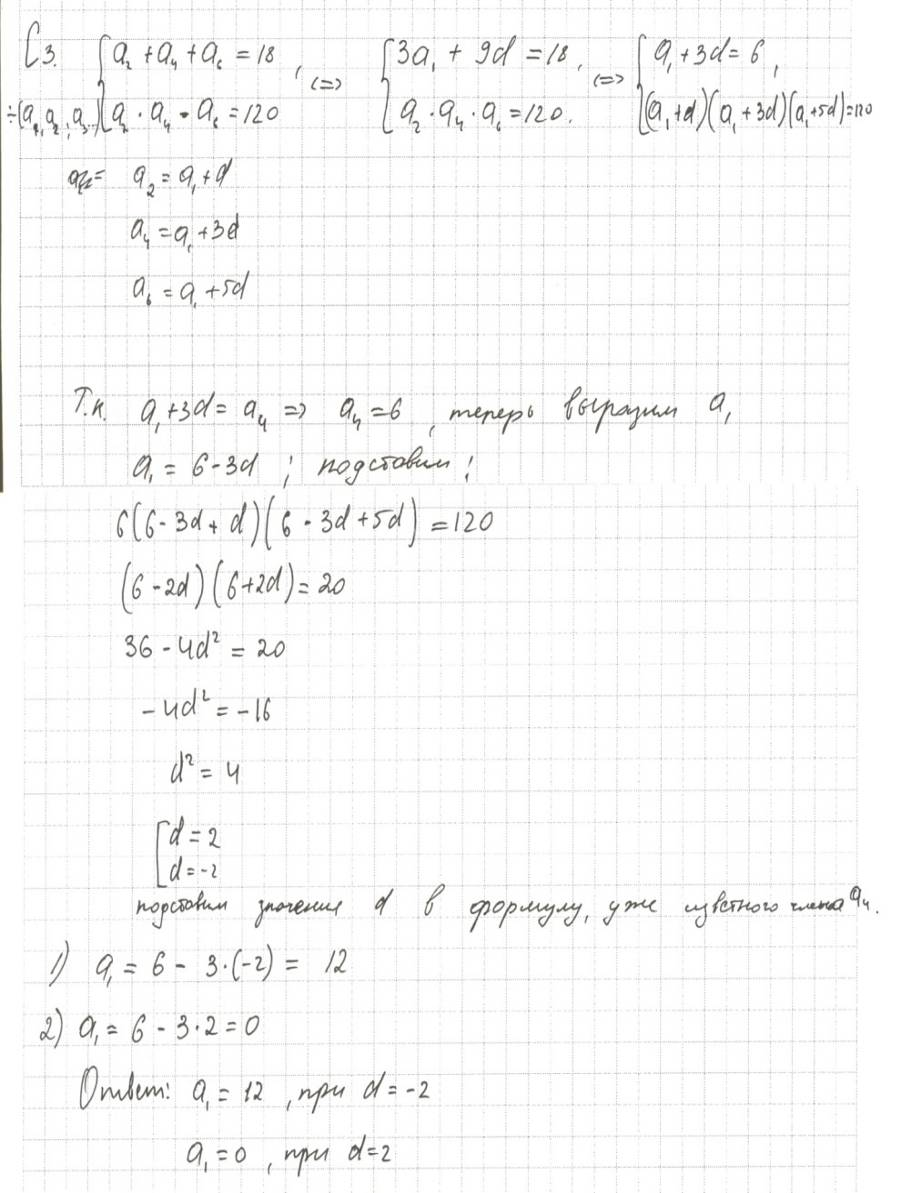 C3. { a₂ + a₄ + a₆ = 18 , <=> { 3a₁ + 9d = 18, <=> { a₁ + 3d = 6,
÷(a₁, a₂, a₃..) { a₂ · a₄ · a₆ = 120 { a₂ · a₄ · a₆ = 120. { (a₁+d)(a₁+3d)(a₁+5d)=120
a₂ = a₁ + d
a₄ = a₁ + 3d
a₆ = a₁ + 5d
Т.к. a₁ + 3d = a₄ => a₄ = 6 , теперь выразим a₁
a₁ = 6 - 3d ; подставим:
6(6 - 3d + d)(6 - 3d + 5d) = 120
(6 - 2d)(6 + 2d) = 20
36 - 4d² = 20
-4d² = -16
d² = 4
[ d = 2
[ d = -2
подставим значения d в формулу, уже известного члена a₄.
1) a₁ = 6 - 3·(-2) = 12
2) a₁ = 6 - 3·2 = 0
Ответ: a₁ = 12 , при d = -2
a₁ = 0 , при d = 2